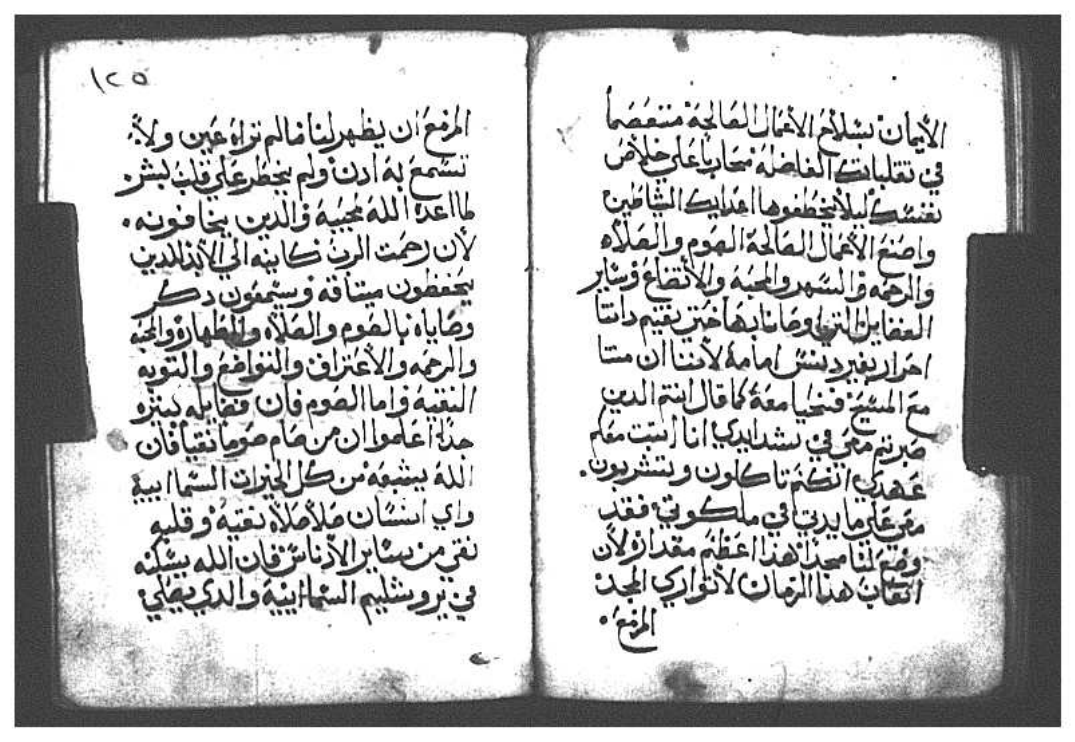 الأيمان بسلاح الأعمال الصالحة متعصماً
في تقلباتك الفاضله محارباً على خلاص
نفسك ليلا يخطفوها اعدايك الشياطين
واصنع الأعمال الصالحة الصوم والصلاه
والرحمه والسهر والمحبة والأتضاع وساير
الفضايل التي اوصانا بها حتى نقيم داتنا
احرار بغير دنس امامة لأننا ان متنا
مع المسيح فنحيا معة كما قال انتم الدين
صبرتم معي في شدايدي انا اتبت معكم
عهدي انكم تاكلون وتشربون.
معي على مايدتي في ملكوتي فقد
وضع لنا مجداً هذا اعظم مقداره لأن
اتعاب هدا الزمان لأتوازي المجد
المزمع.
١٢٥
المزمع ان يظهر لنا مالم تراه عين ولأ.
تسمع به ادن ولم يخطر على قلب بشر
ما اعده الله لمحبيه والدين يخافونه.
لأن رحمت الرب كاينه الي الأبد للدين
يحفظون ميتاقه وسيمعون دكر
وصاياه بالصوم والصلاه والطهارة والمحبه
والرحمه والأعتراف والتواضع والتوبه
النقيه واما الصوم فان فضايله كبيره
جداً اعلموا ان من صام صوماً نقياً فان
الله يشبعه من كل الخيرات السماايية
واي انسان صلا صلاه نقيه وقلبه
نقي من ساير الأدناس فان الله يسكنه
في يروشليم السماايية والدي يصلي